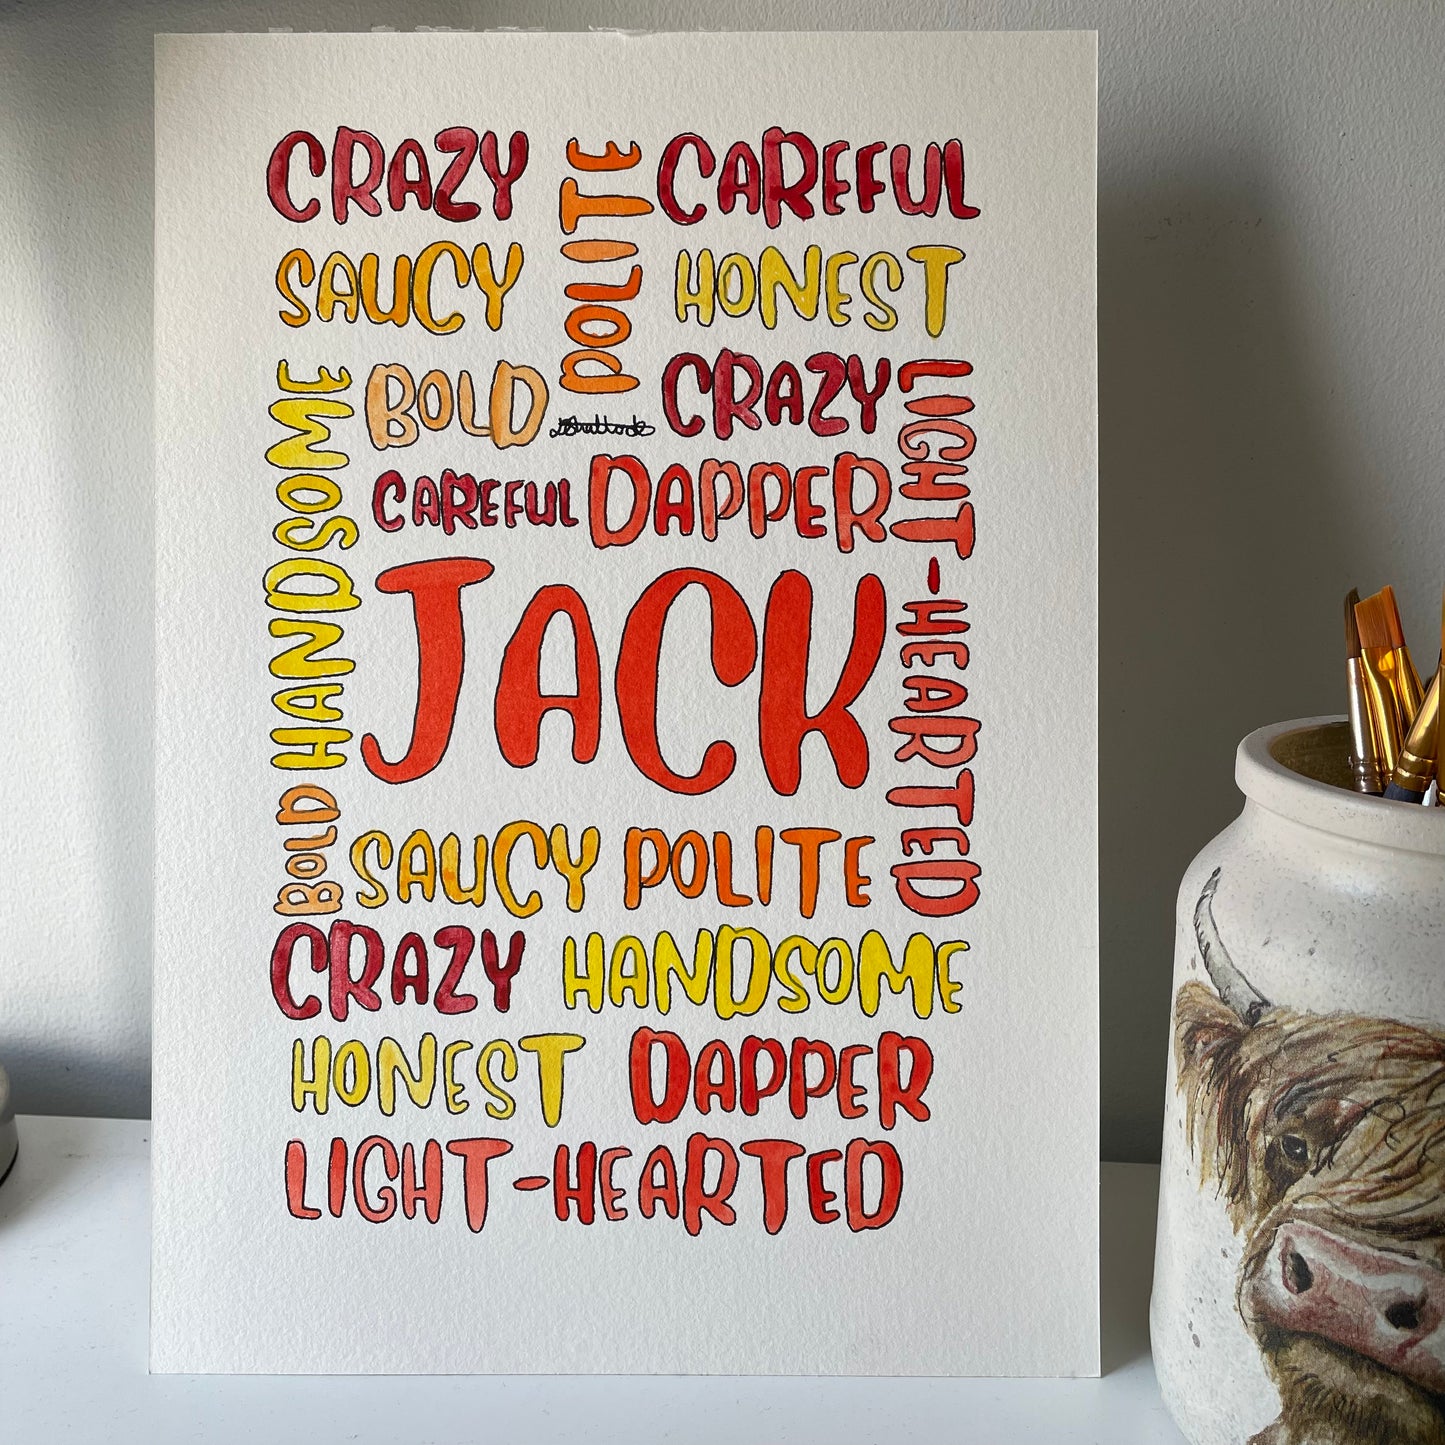 CRAZY POLITE CAREFUL
SAUCY HONEST
HANDSOME BOLD CRAZY LIGHT-HEARTED
CAREFUL DAPPER
JACK
BOLD SAUCY POLITE
CRAZY HANDSOME
HONEST DAPPER
LIGHT-HEARTED